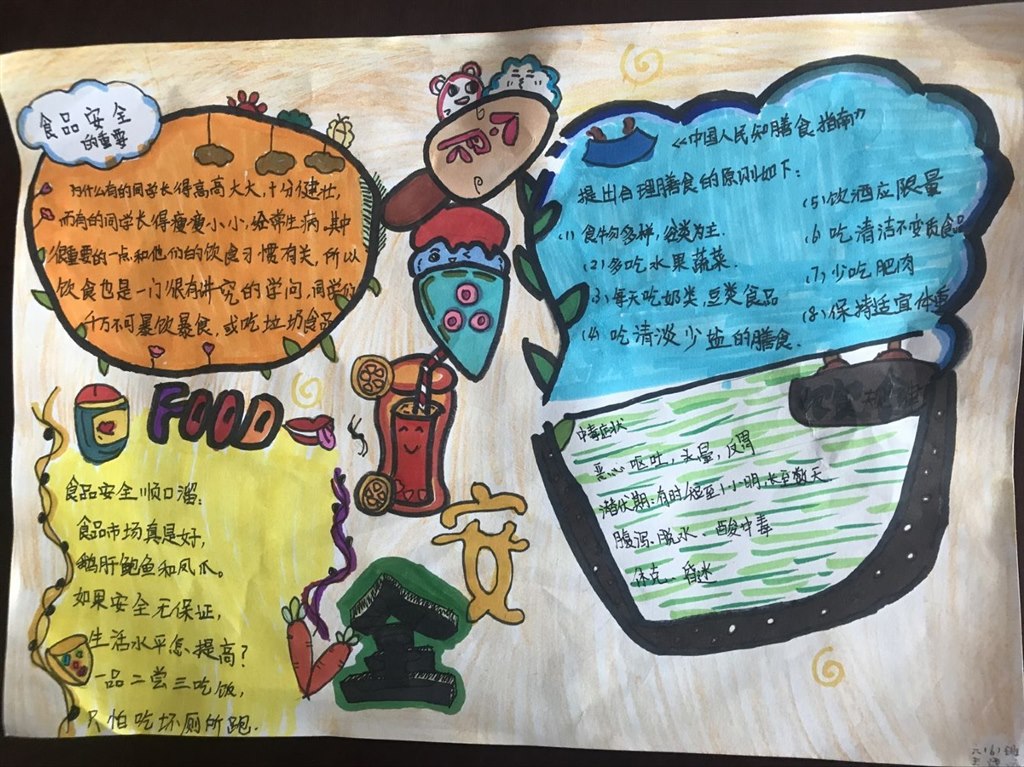 食品安全
的重要
为什么有的同学长得高高大大,十分健壮,
而有的同学长得瘦瘦小小,经常生病,其中
很重要的一点和他们的饮食习惯有关,所以
饮食也是一门很有讲究的学问,同学们
千万不可暴饮暴食,或吃垃圾食品
FOOD
食品安全顺口溜:
食品市场真是好,
鹅肝鲍鱼和凤爪。
如果安全无保证,
生活水平怎提高?
一品二尝三吃饭,
只怕吃坏厕所跑.
安
全
《中国人民知膳食指南》
提出合理膳食的原则如下:
(1)食物多样,谷类为主.
(2)多吃水果蔬菜.
(3)每天吃奶类、豆类食品
(4)吃清淡少盐的膳食.
(5)饮酒应限量
(6)吃清洁不变质食品
(7)少吃肥肉
(8)保持适宜体重
中毒症状
恶心、呕吐,头晕,反胃
潜伏期:有时短至1小时,长至数天
腹泻、脱水、酸中毒
休克、昏迷
六(6)班